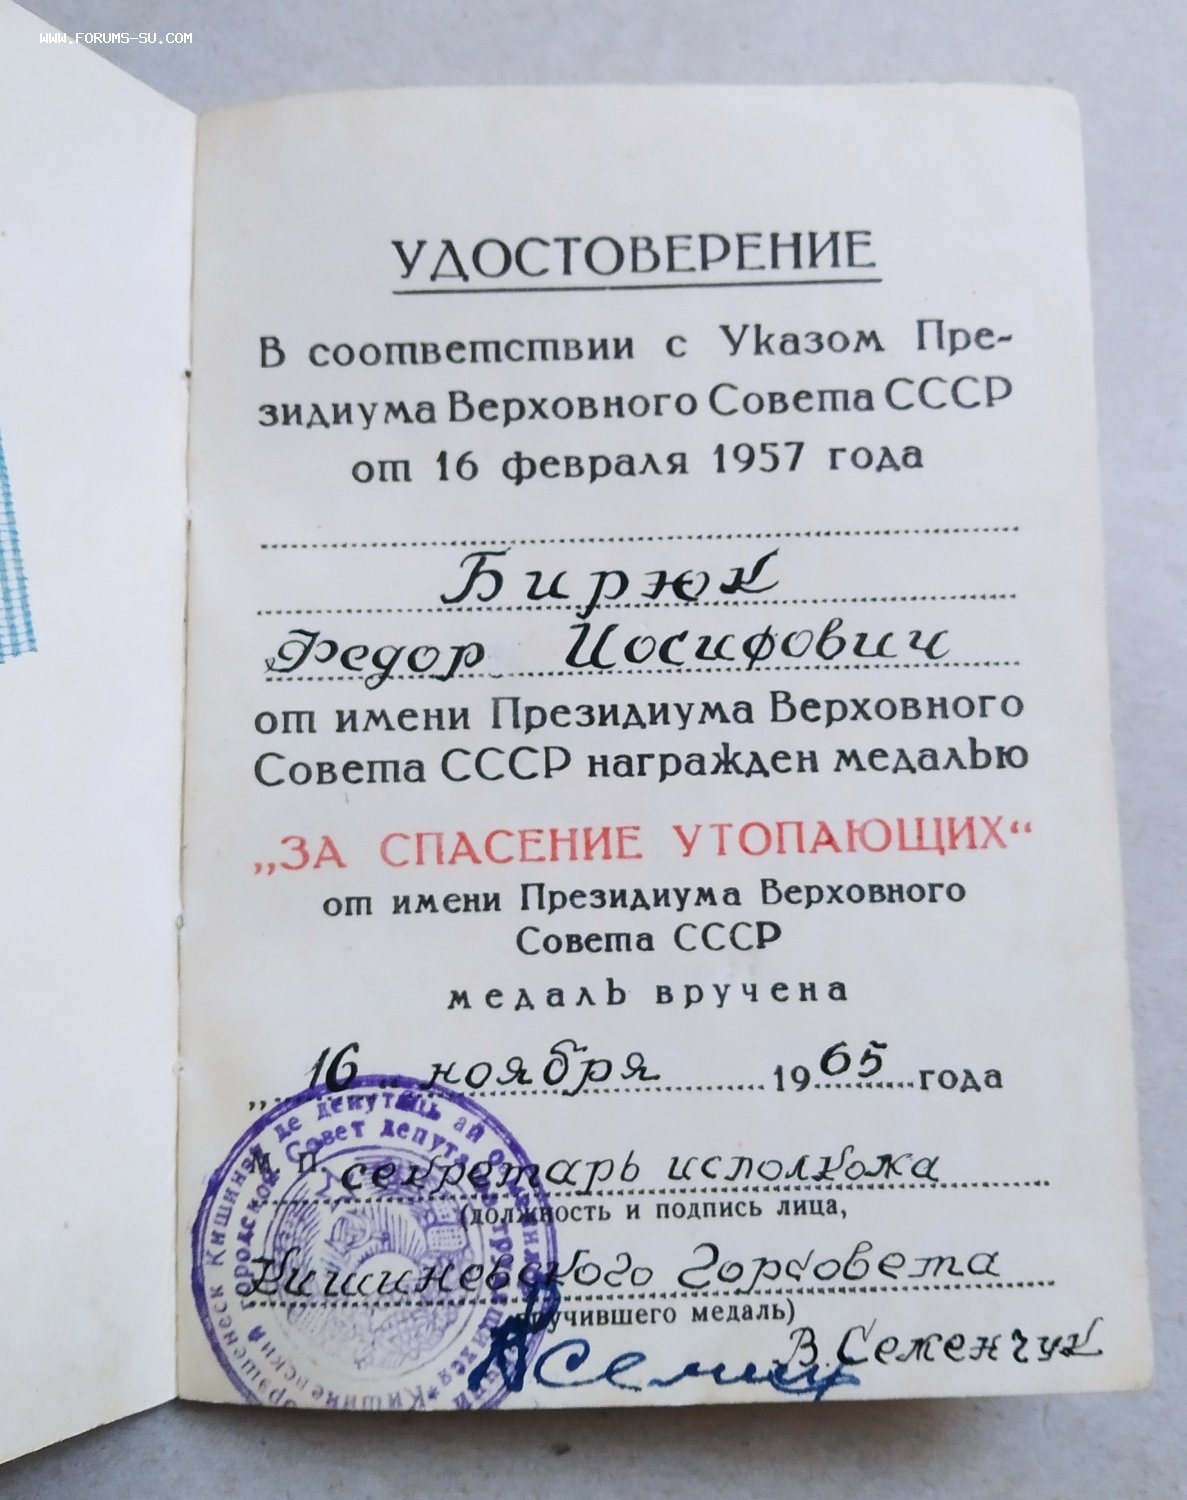 WWW.FORUMS-SU.COM
УДОСТОВЕРЕНИЕ
В соответствии с Указом Пре-
зидиума Верховного Совета СССР
от 16 февраля 1957 года
Бирюк
Федор Иосифович
от имени Президиума Верховного
Совета СССР награжден медалью
„ЗА СПАСЕНИЕ УТОПАЮЩИХ“
от имени Президиума Верховного
Совета СССР
медаль вручена
„16„ ноября 1965 года
М. П. секретарь исполкома
(должность и подпись лица,
Кишиневского Горсовета
вручившего медаль)
В. Семенчук